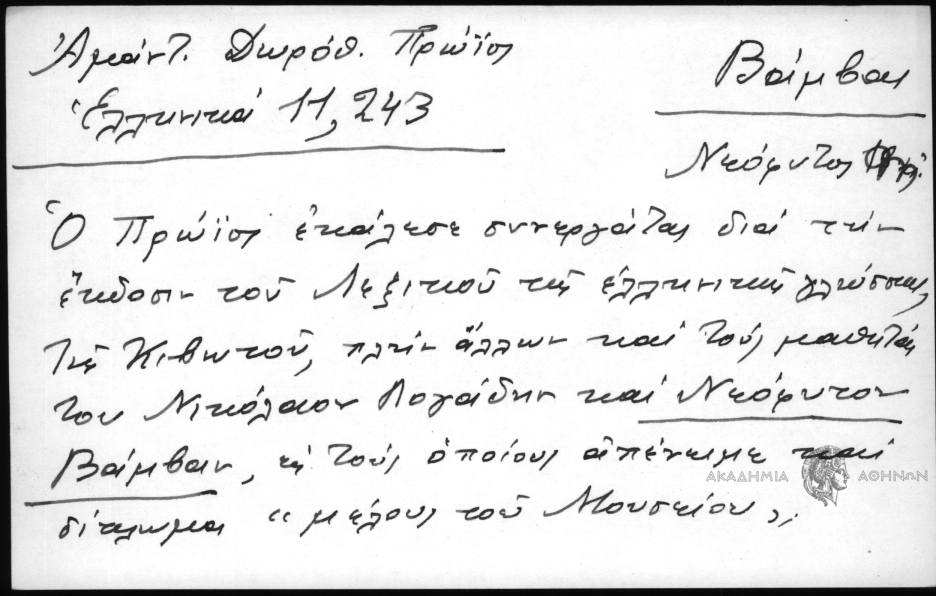 Ἀμάντ. Δωρόθ. Πρώϊος
Ἑλληνικά 11, 243
Βάμβας
Νεόφυτος
Ὁ Πρώϊος ἐκάλεσε συνεργάτας διά τήν
ἔκδοσιν τοῦ Λεξικοῦ τῆς ἑλληνικῆς γλώσσας,
τῆς Κιβωτοῦ, πλήν ἄλλων καί τούς μαθητάς
του Νικόλαον Λογάδην καί Νεόφυτον
Βάμβαν, εἰς τούς ὁποίους ἀπένειμε καί
δίπλωμα « μέλους τοῦ Μουσείου ».
ΑΚΑΔΗΜΙΑ ΑΘΗΝΩΝ